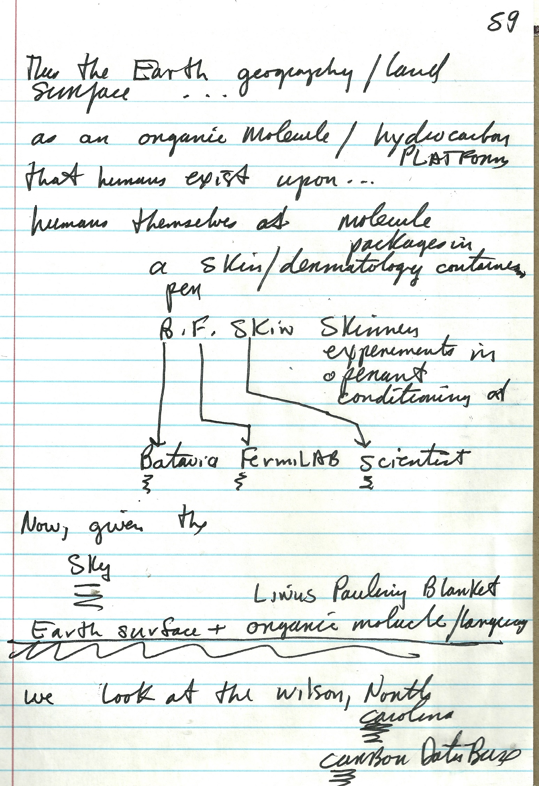 59
Thus the Earth geography / land
surface ....
as an organic molecule / hydrocarbon
PLATFORM
that humans exist upon...
humans themselves as molecule
packages in
a skin/dermatology container
pen
B.F. Skin Skinner
experements in
openant
conditioning at
Batavia FermiLAB Scientist
Now, given the
Sky
Linus Pauling Blanket
Earth surface + organic molucule/language
we look at the Wilson, North
Carolina
CARBON DataBase